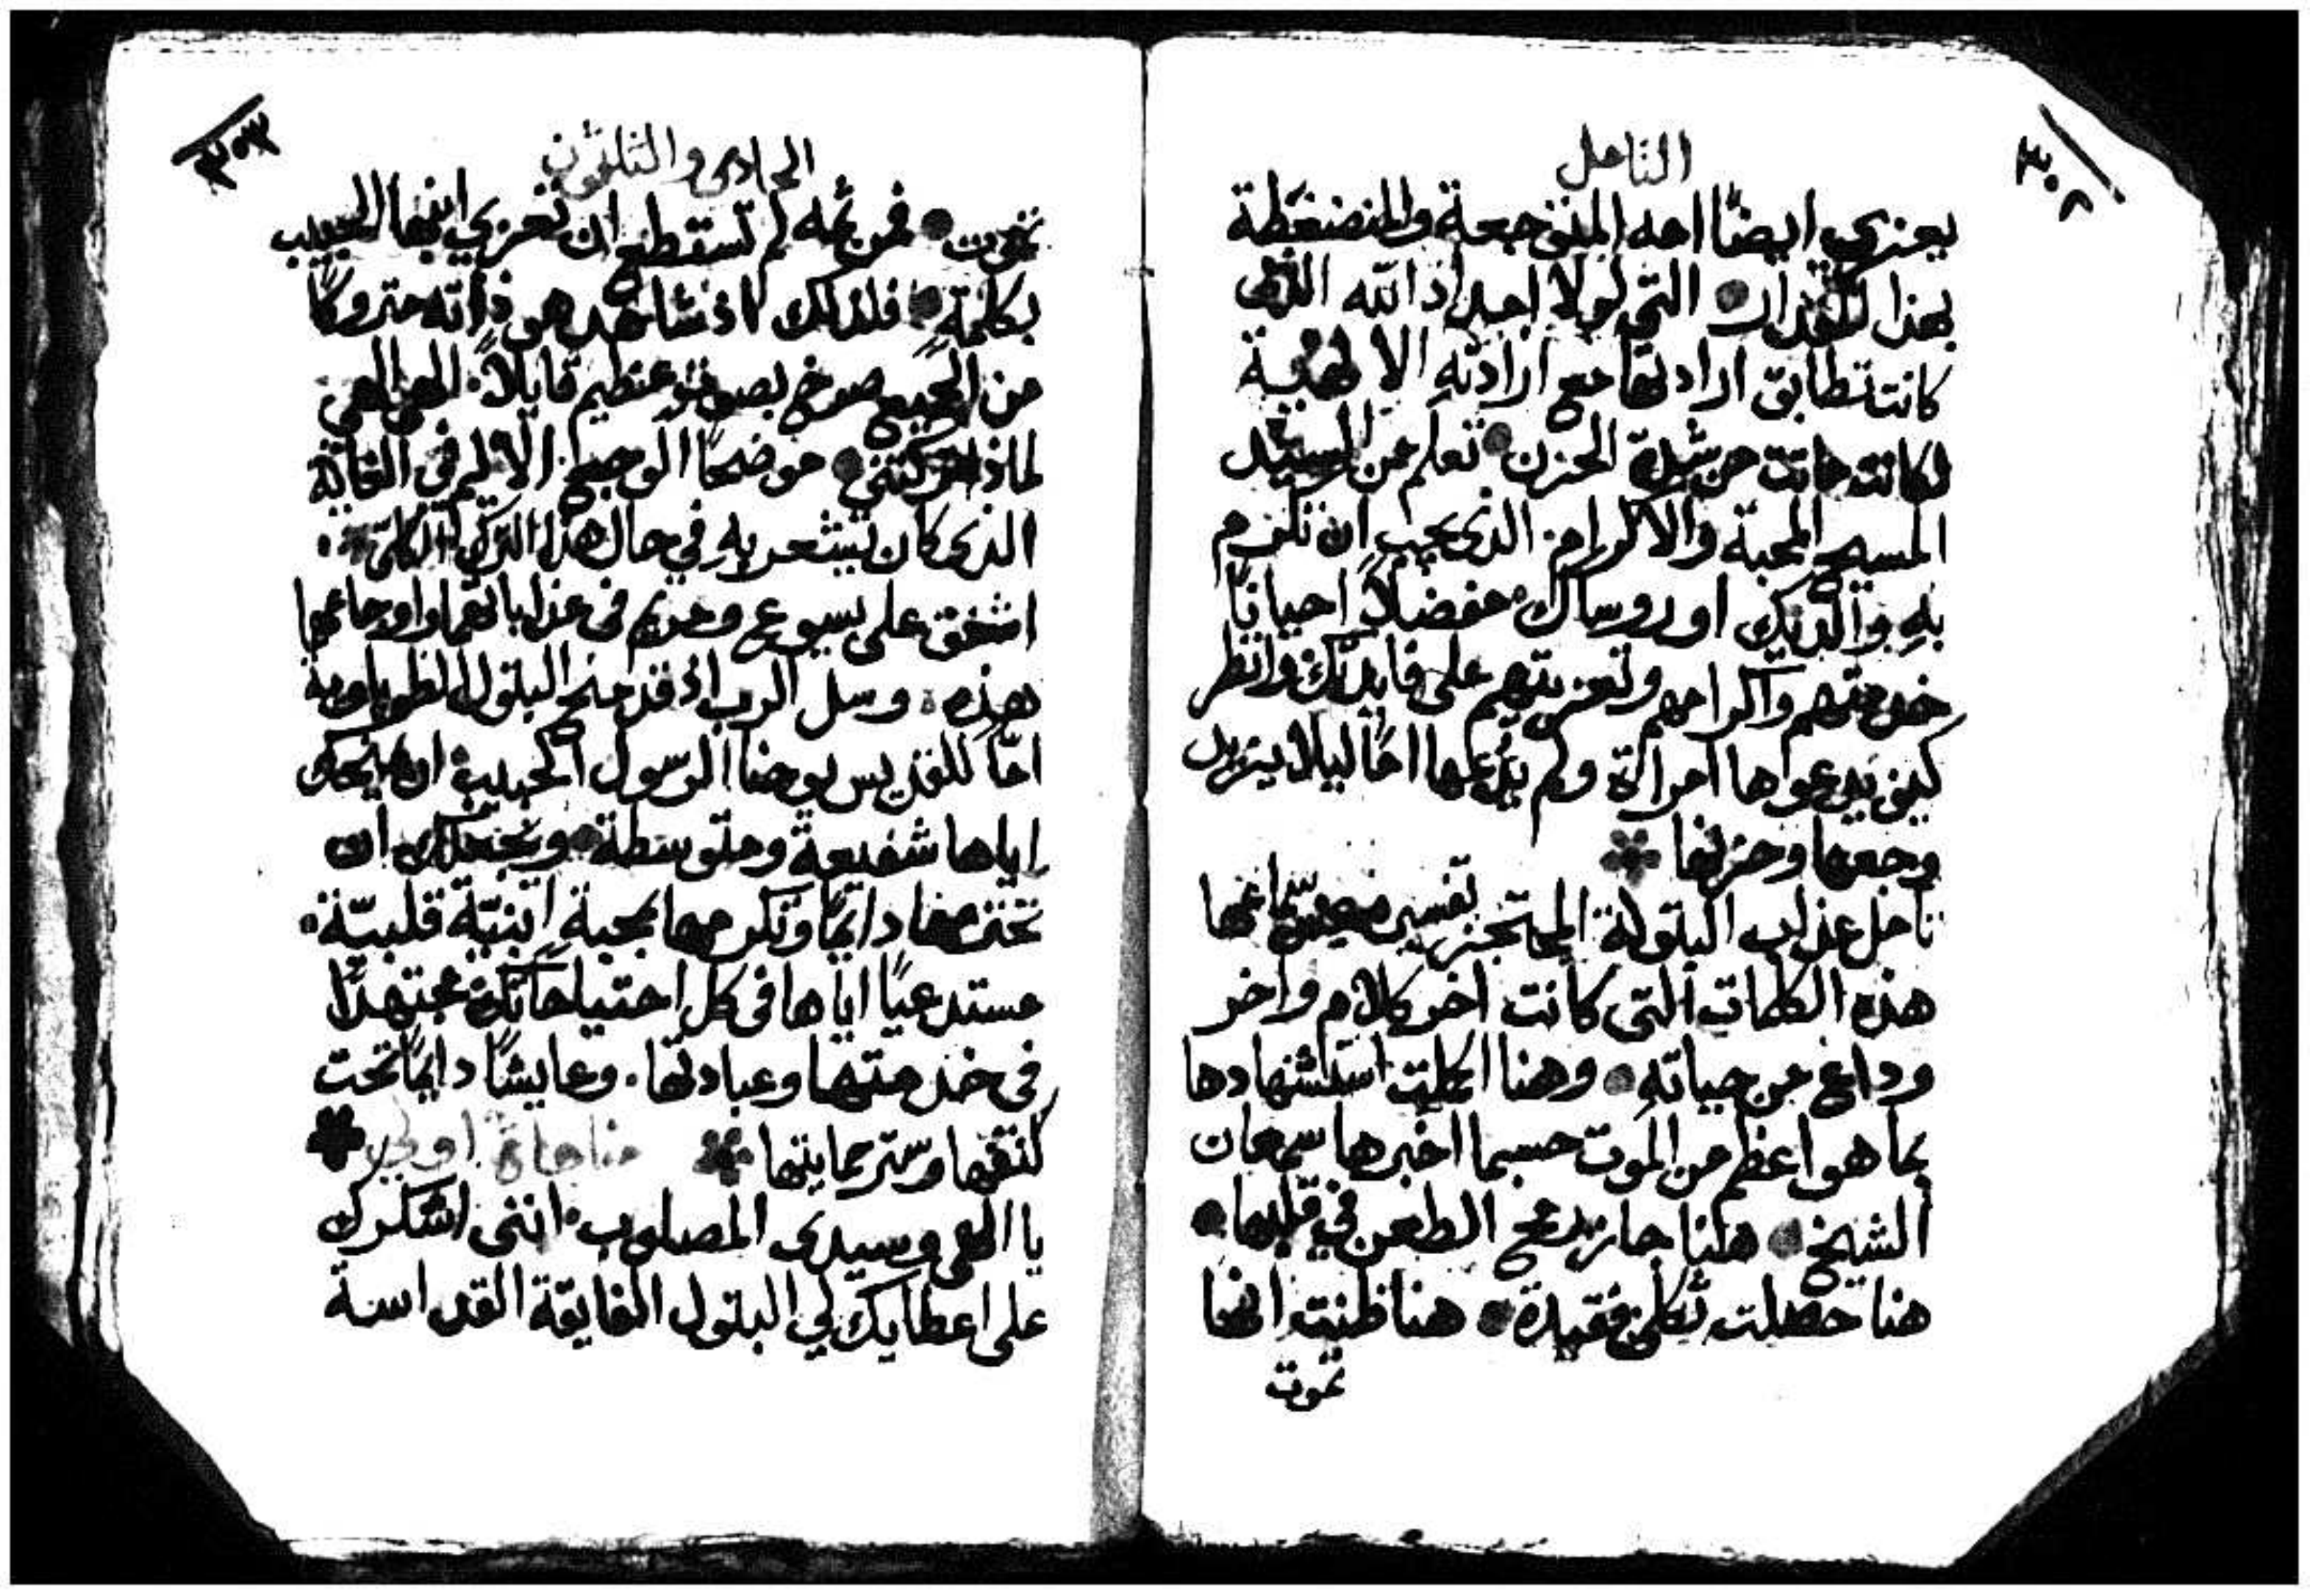 ٣٠٢
التامل
يعزي ايضًا امه المتوجعة والمنضغطة
بهذا المقدار التي لولا امداد الله الذي
كانت تطابق ارادتها مع ارادته الالهية
لكانت ماتت من شدة الحزن تعلم من السيد
المسيح المحبة والاكرام الذي يجب ان تلزم
به والديك او روساك مفضلاً احيانًا
خدمتهم واكرامهم وتعزيتهم على فايدتك وانظر
كيف يدعوها امراة ولم يدعها امًا ليلا يزيد
وجعها وحزنها
تامل عذاب البتولة المحتجز تفسيره عند سماعها
هذه الكلمات التي كانت اخر كلام واخر
وداع من حياته وهنا اكملت استشهادها
بما هو اعظم من الموت حسبما اخبرها سمعان
الشيخ هنا جاز رمح الطعن في قلبها
هنا حصلت ثكلى فقيدة هنا ظنت انها
تموت
٣٠٣
الحادي والثلثون
تموت فمن ثمه لم تستطع ان تعزي ابنها الحبيب
بكلمة فلذلك اذ شاهد هو ذاته متروكًا
من الجميع صرخ بصوت عظيم قايلاً الهي الهي
لماذا تركتني موضحًا الوجع الاليم في الغاية
الذي كان يشعر به في حال هذا الترك الكلي
اشفق على يسوع ومريم في عذاباتهما واوجاعهما
هذه وسل الرب اذ قد منح البتول الطوباوية
امًا للقديس يوحنا الرسول الحبيب ان يمنحك
اياها شفيعة ومتوسطة ويجعلك ان
تحترمها دايمًا وتكرمها بمحبة ابنيّة قلبيّة
مستدعيًا اياها في كل احتياجاتك مجتهدًا
في خدمتها وعبادتها وعايشًا دايمًا تحت
كنفها وستر حمايتها مناجاة اولى
يا الهي وسيدي المصلوب انني اشكرك
على اعطايك لي البتول الفايقة القداسة